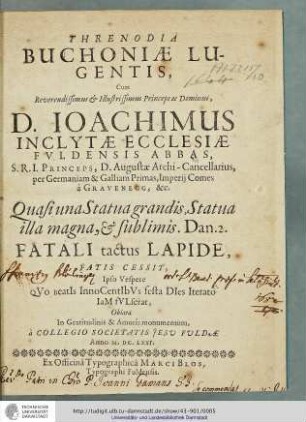 THRENODIA
BUCHONIÆ LU-
GENTIS,
Cum
Reverendissimus & Illustrissimus Princeps ac Dominus,
D. IOACHIMUS
INCLYTÆ ECCLESIÆ
FVLDENSIS ABBAS,
S.R.I. PRINCEPS, D. Augustæ Archi-Cancellarius,
per Germaniam & Galliam Primas, Imperij Comes
á GRAVENEGG, &c.
Quasi una Statua grandis, Statua
illa magna, & sublimis. Dan. 2.
FATALI tactus LAPIDE,
FATIS CESSIT,
Ipso Vespere
qVo beatIs InnoCentIbVs festa DIes Iterato
IaM fVLserat,
Oblata
In Gratitudinis & Amoris monumentum,
à COLLEGIO SOCIETATIS JESU FULDÆ
Anno M. DC. LXXI.
Ex Officinâ Typographicâ MARCI BLOS,
Typographi Fuldensis.
http://tudigit.ulb.tu-darmstadt.de/show/43-901/0005
Universitäts- und Landesbibliothek Darmstadt